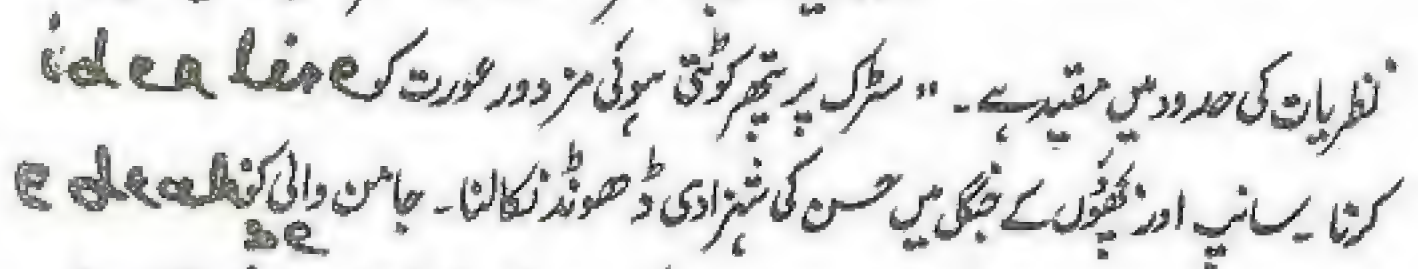 نظریات کی حدود میں مقید ہے۔ "سڑک پر پتھر کوٹتی ہوئی مزدور عورت کو idealise
کرنا۔ سانپ اور بچھوؤں کے جنگل میں حسن کی شہزادی ڈھونڈ نکالنا۔ جامن والی کو